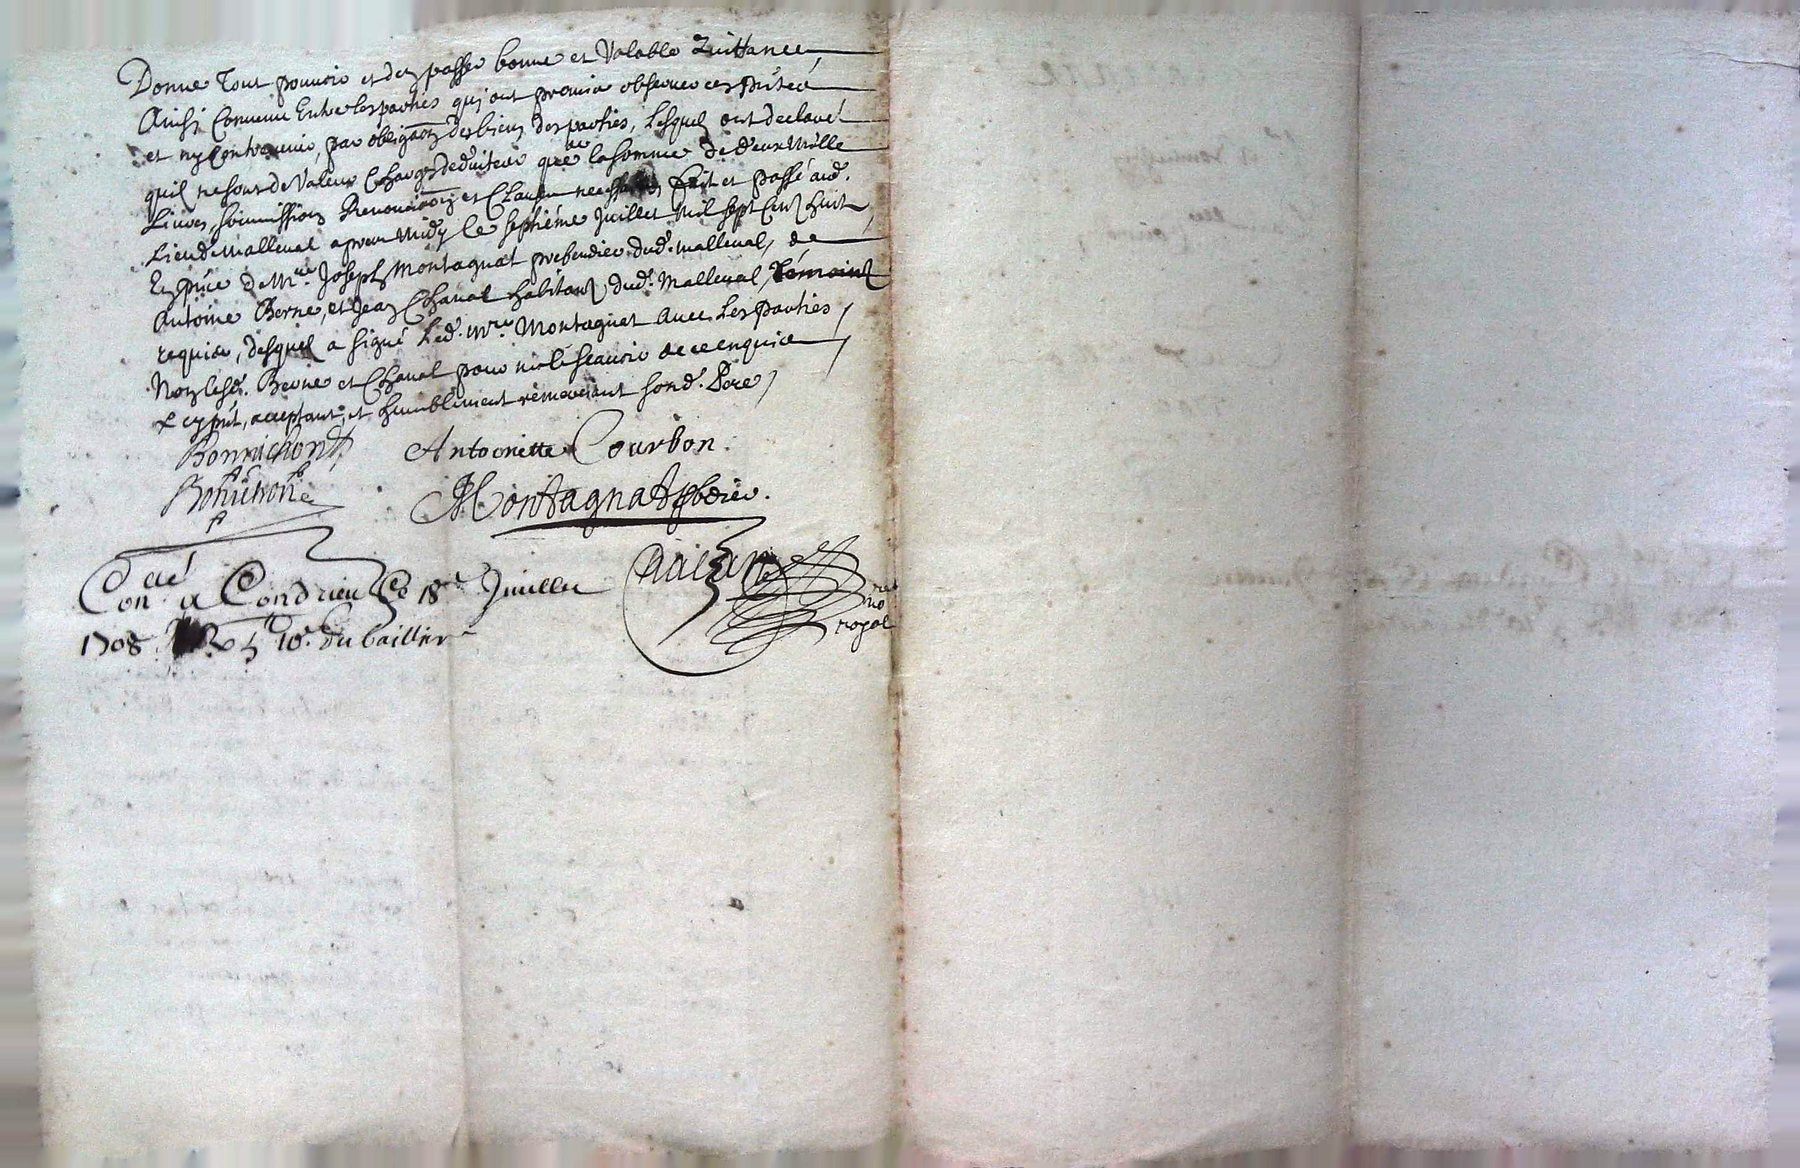 Donne Tout pouvoir et den passer bonne et Valable Quittance,
Ainsi Convenu Entre les parties qui ont promis observer ces pntes
et ny Contrevenir, par obligaõn des biens des parties, Lesquels ont declaré
quil ne sont de Valeur Charges deduites que de la somme de deux Mille
Livres, soumissions Renonciaõns et Clauses necessaires fait et passé aud.
Lieu de Malleval apres Midy le septiéme Juillet Mil sept Cens huit,
En pnce de Mre. Joseph Montagnat prebendier dud. malleval, de
Antoine Berne, et Jean Chaval habitans dud. Malleval, Témoins
requis, desquels a signé Led. Mre. Montagnat avec Les parties,
Non lesd. Berne et Chaval pour ne le scavoir de ce enquis,
& cy pnt, acceptant, et humblement remerciant sond. Pere,
Bonnichond Antoinette Courbon.
Montagnat pbdier.
Con.lé a Condrieu Ce 18e Juillet
1708 R 5 10s. du baillier
no
royal